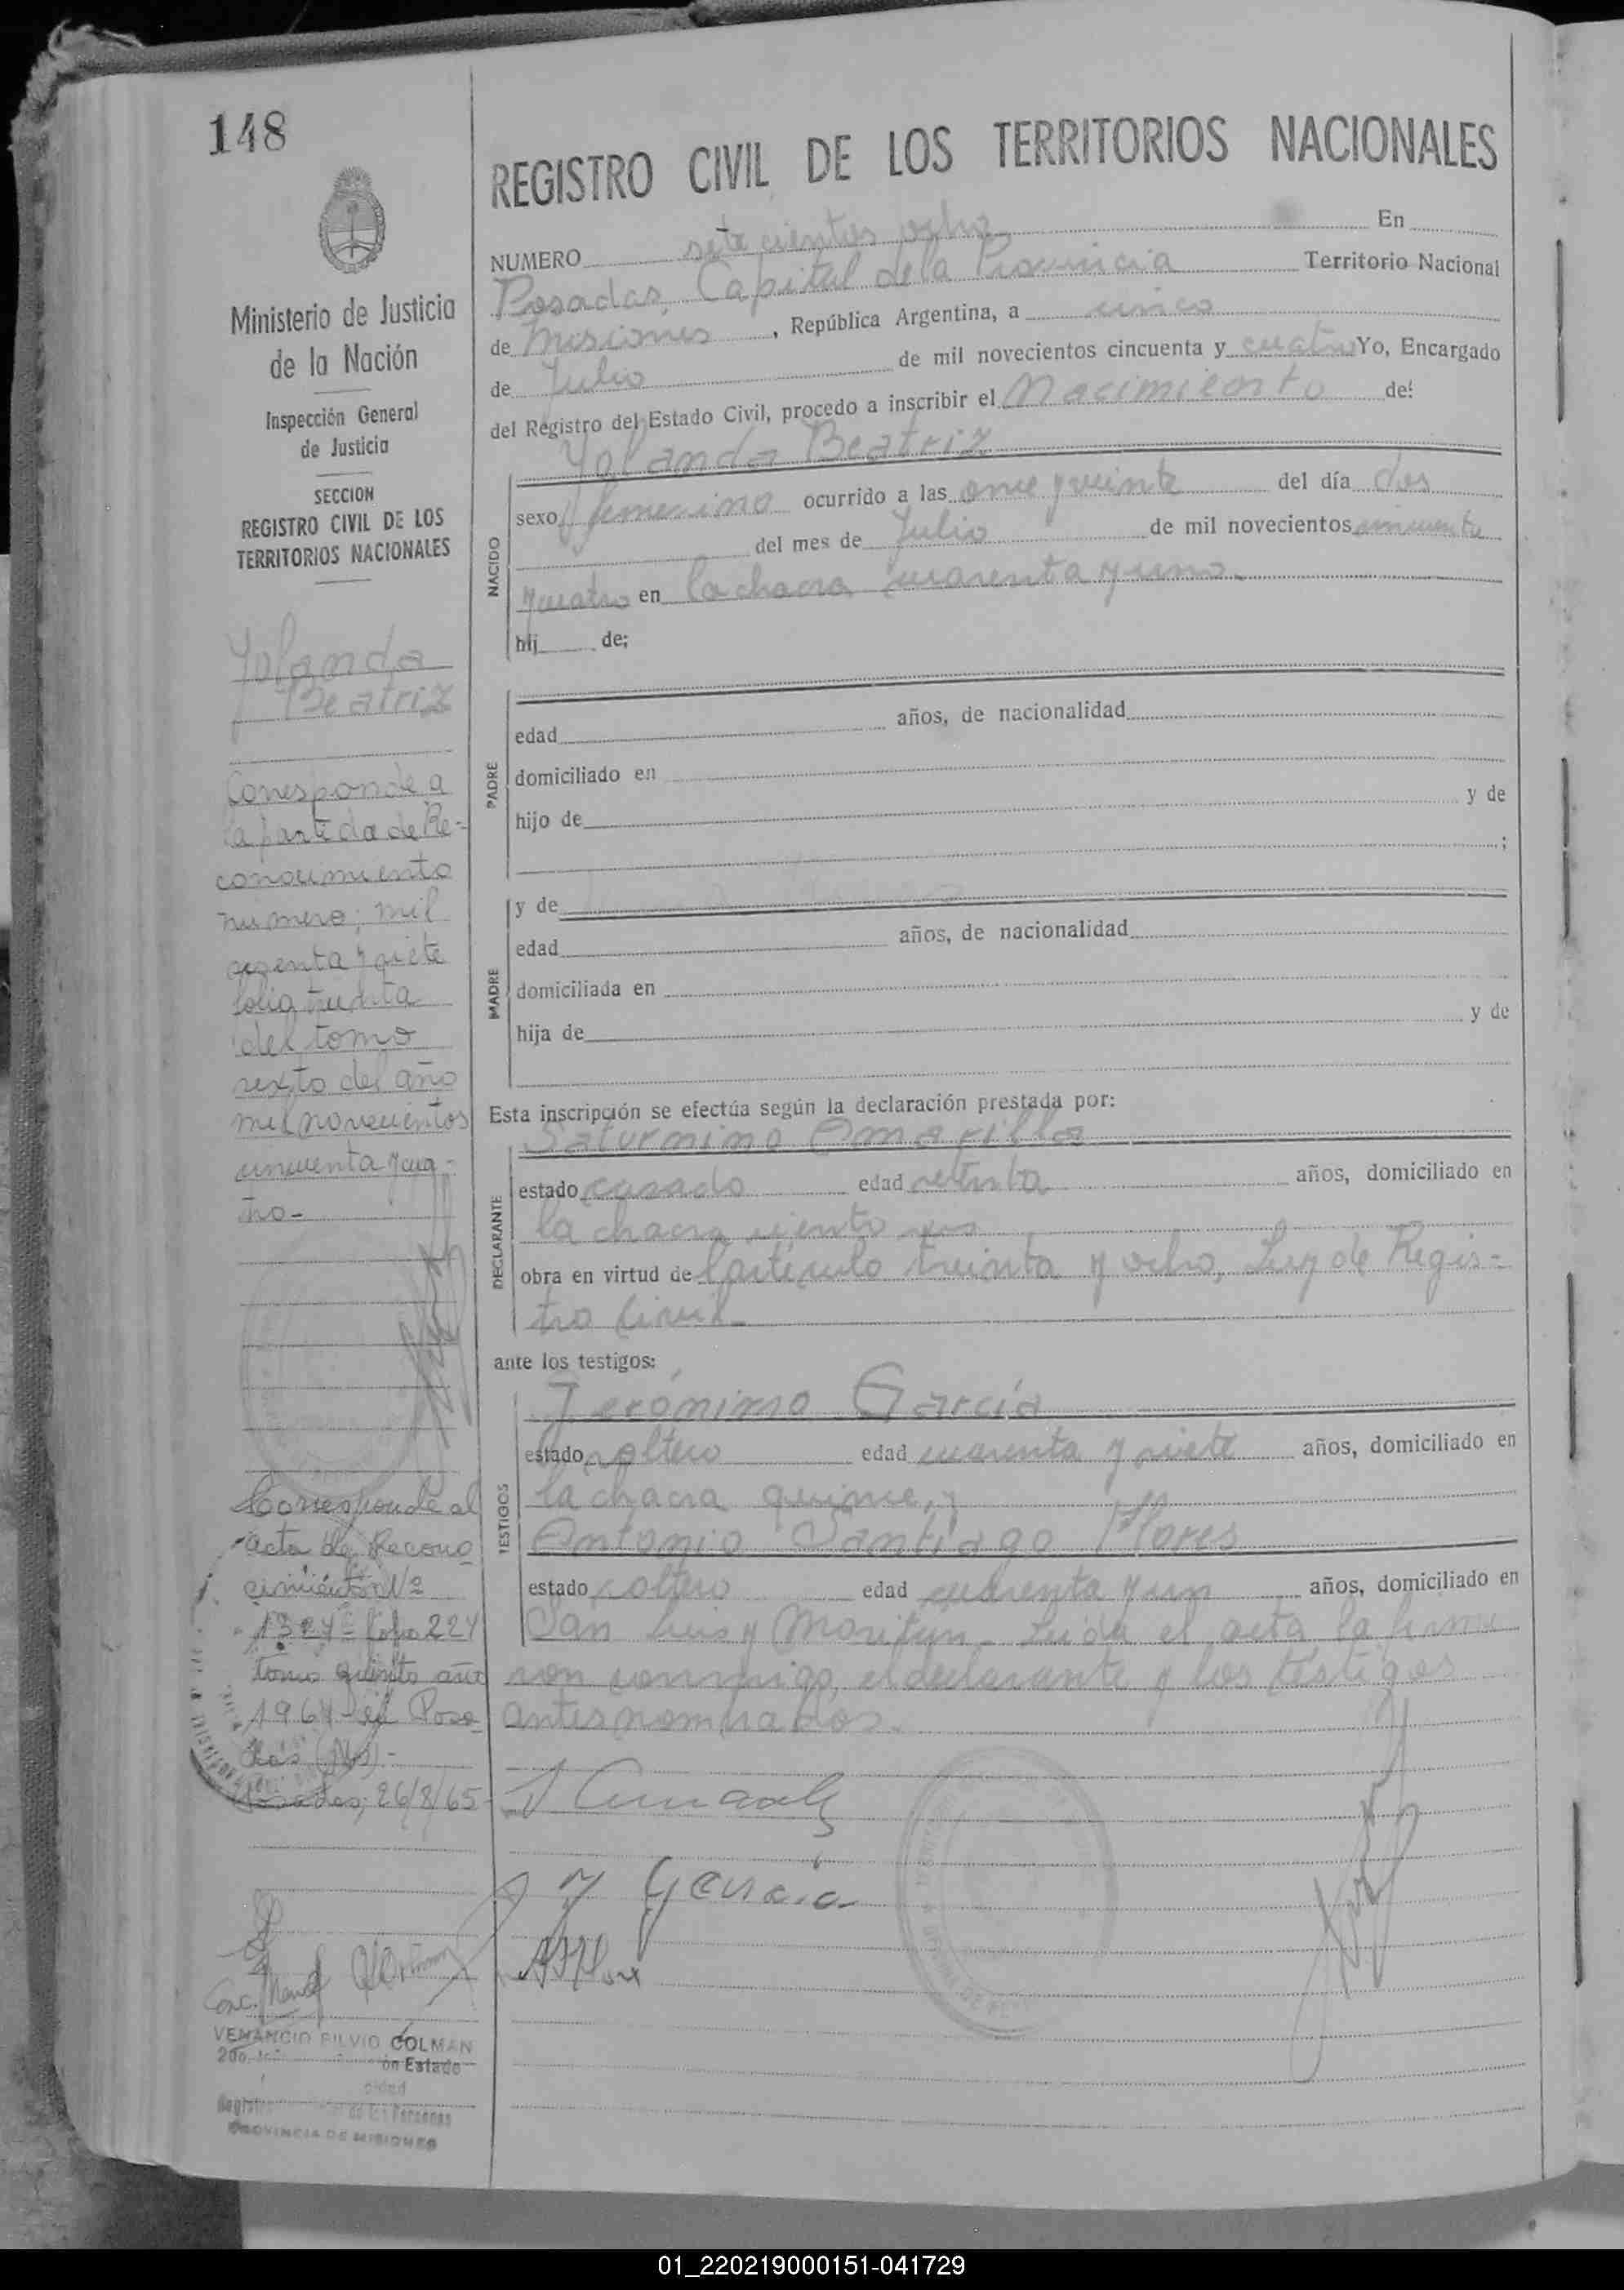 148
Ministerio de Justicia
de la Nación
Inspección General
de Justicia
SECCION
REGISTRO CIVIL DE LOS
TERRITORIOS NACIONALES
Yolanda
Beatriz
Corresponde a
la partida de Re-
conocimiento
numero; mil
y siete
folio treinta
del tomo
sexto del año
mil novecientos
cincuenta y cua-
tro-
Corresponde al
acta de Recono
cimiento Nº
1324 - folio 224
tomo quinto año
1964 - Posa
das (Ms) -
Posadas, 26/8/65-
VENANCIO SILVIO COLMAN
2do.
ón Estado
cidad
Registro de las Personas
PROVINCIA DE MISIONES
REGISTRO CIVIL DE LOS TERRITORIOS NACIONALES
NUMERO setecientos ocho En
Posadas, Capital de la Provincia Territorio Nacional
de Misiones, República Argentina, a cinco
de Julio de mil novecientos cincuenta y cuatro Yo, Encargado
del Registro del Estado Civil, procedo a inscribir el Nacimiento de:
NACIDO
Yolanda Beatriz
sexo femenino ocurrido a las once y veinte del día dos
del mes de Julio de mil novecientos cincuenta
y cuatro en la chacra cuarenta y uno.
hij de;
PADRE
edad años, de nacionalidad
domiciliado en
hijo de y de
;
MADRE
y de
edad años, de nacionalidad
domiciliada en
hija de y de
Esta inscripción se efectúa según la declaración prestada por:
DECLARANTE
Saturnino Amarilla
estado casado edad setenta años, domiciliado en
la chacra ciento
obra en virtud del artículo treinta y ocho, Ley de Regis-
tro Civil.
ante los testigos:
TESTIGOS
Jerónimo García
estado soltero edad cuarenta y siete años, domiciliado en
la chacra quince, y
Antonio Santiago Flores
estado soltero edad cuarenta y un años, domiciliado en
San Luis y Moritán. Leída el acta la firma
ron conmigo, el declarante y los testigos
antes nombrados.
J García
A S Flores
01_220219000151-041729